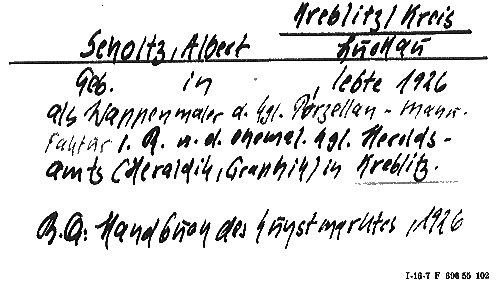 Kreblitz / Kreis
Scholtz, Albert Luckau
Geb. in , lebte 1926
als Wappenmaler d. kgl. Porzellan-Manu-
faktur i. R. u. d. ehemal. kgl. Herolds-
amts (Heraldik, Graphik) in Kreblitz.
B.Q: Handbuch des Kunstmarktes, 1926
I-16-7 F 696 55 102